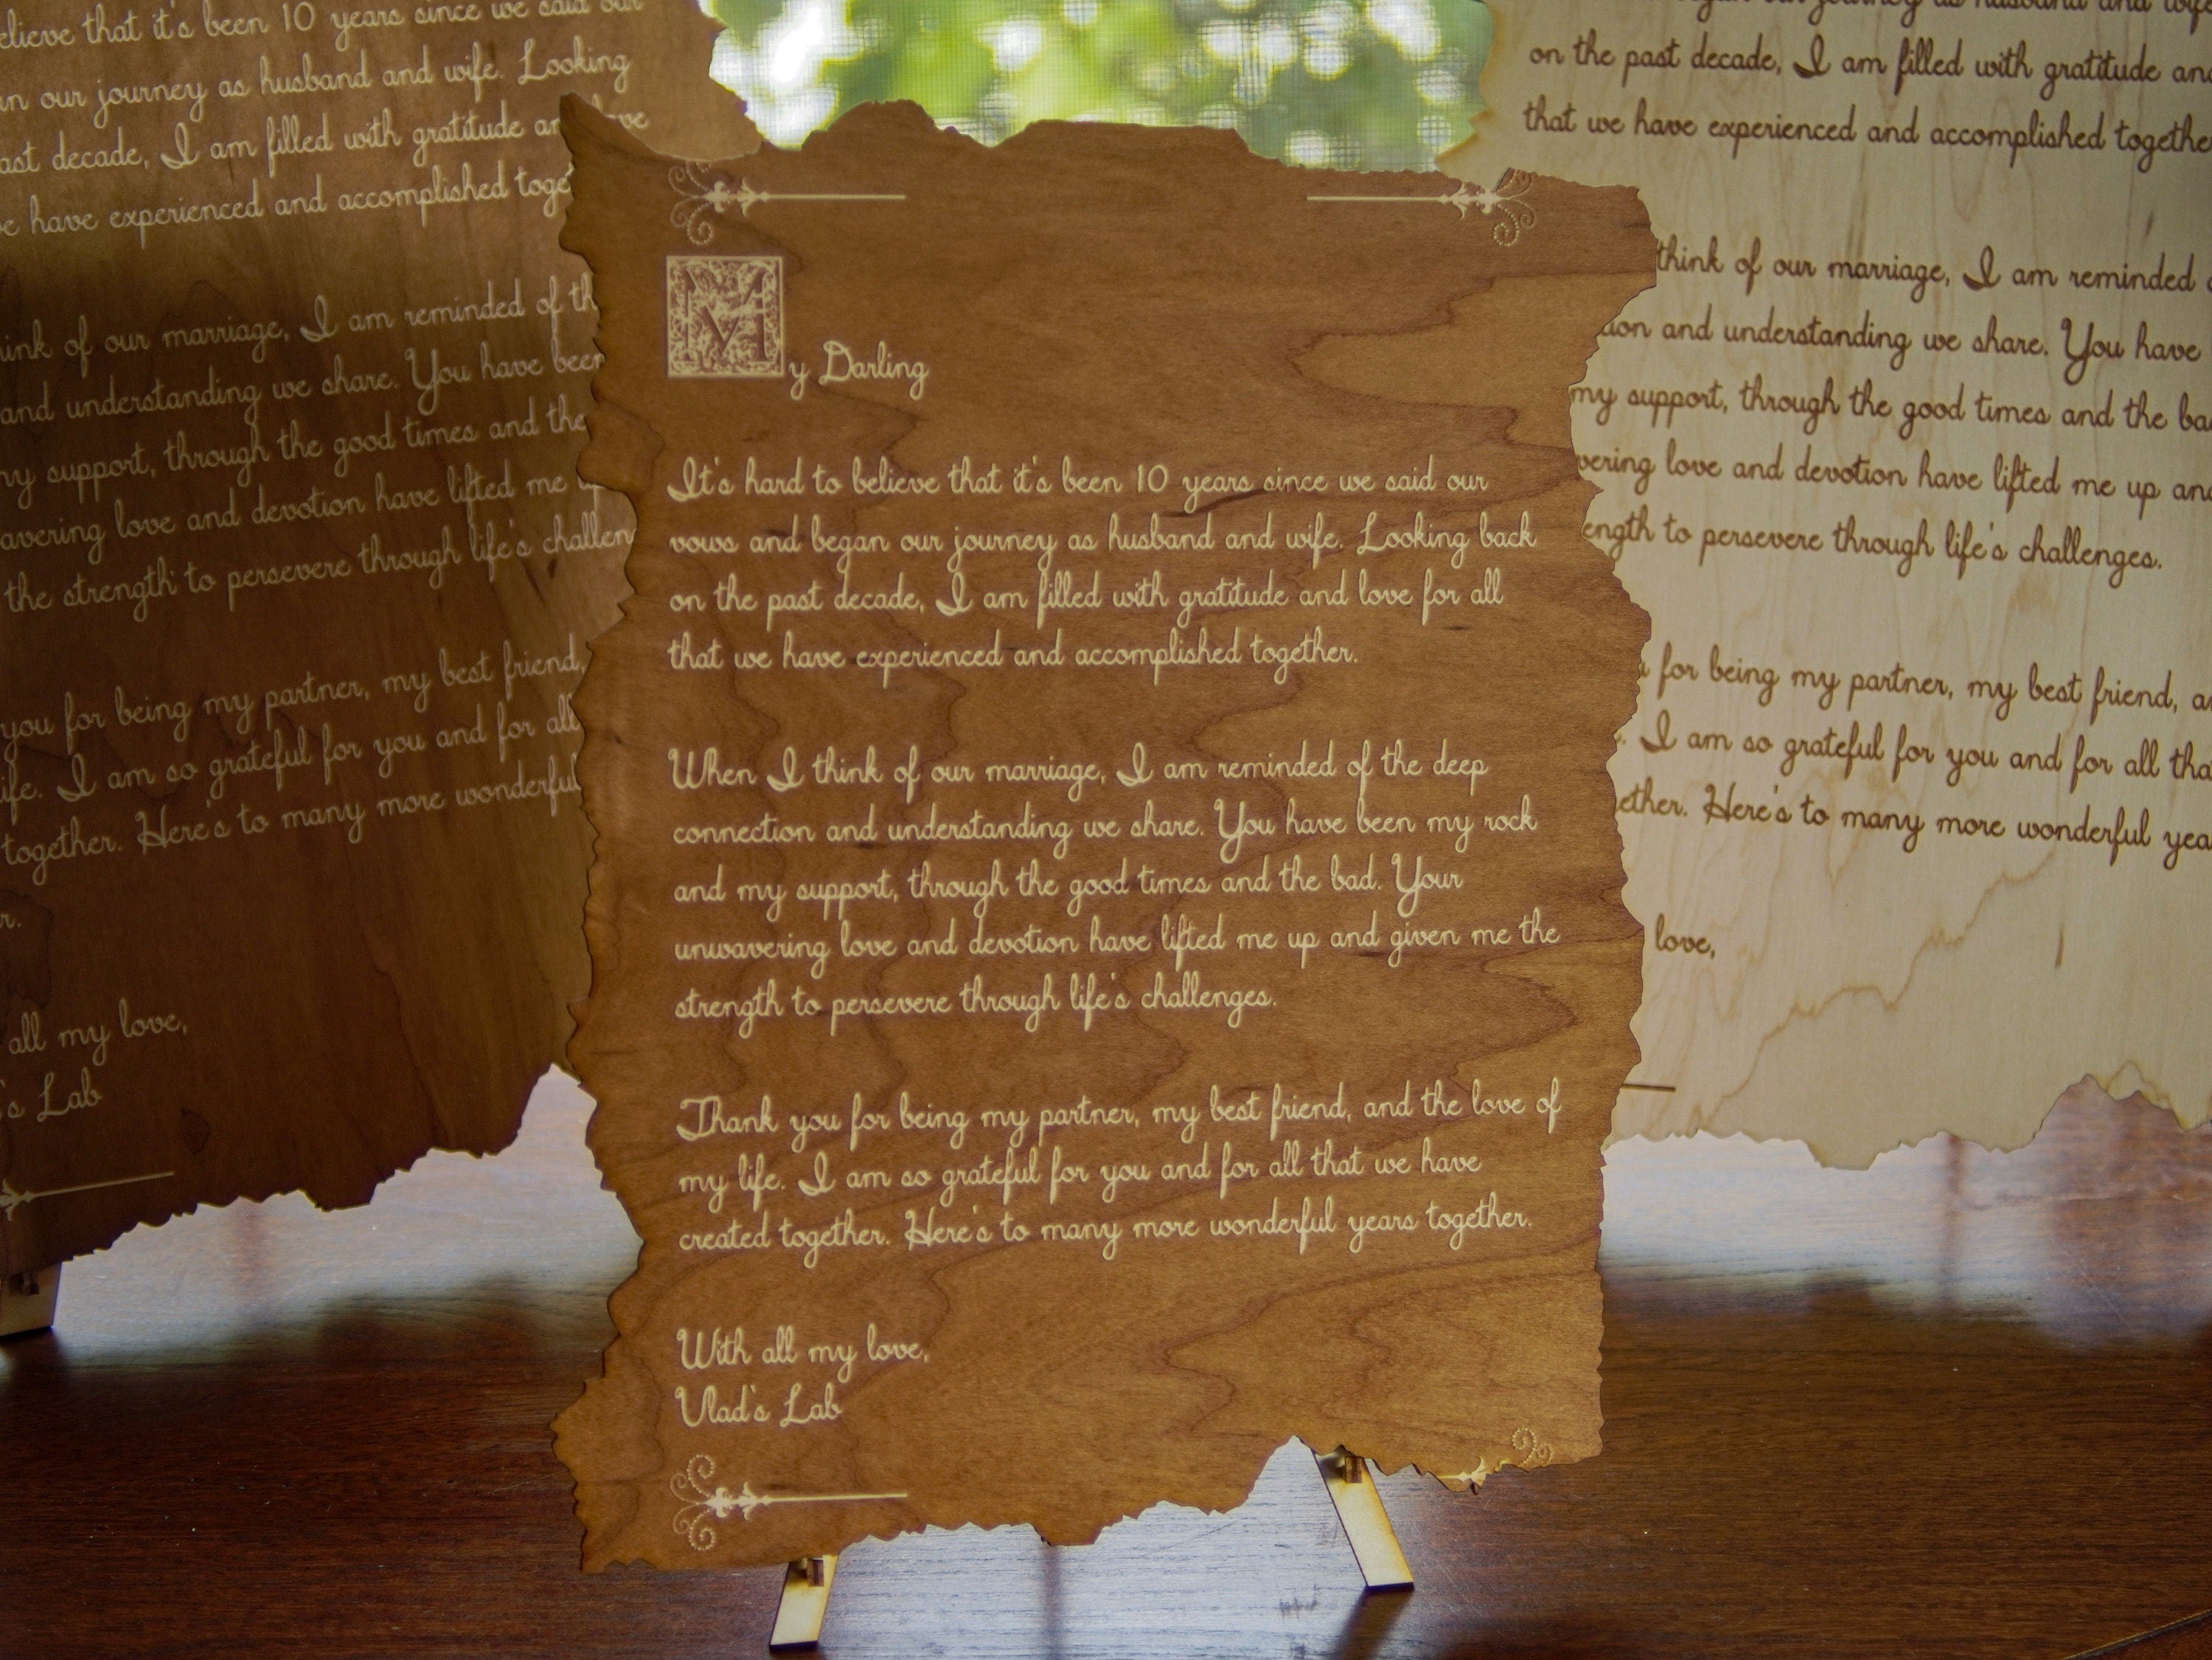 elieve that it's been 10 years since we said our
n our journey as husband and wife. Looking
ast decade, I am filled with gratitude and love
e have experienced and accomplished toge
ink of our marriage, I am reminded of th
and understanding we share. You have been
my support, through the good times and the
avering love and devotion have lifted me up
the strength to persevere through life's challen
you for being my partner, my best friend,
ife. I am so grateful for you and for all
together. Here's to many more wonderful
r.
all my love,
's Lab
My Darling
It's hard to believe that it's been 10 years since we said our
vows and began our journey as husband and wife. Looking back
on the past decade, I am filled with gratitude and love for all
that we have experienced and accomplished together.
When I think of our marriage, I am reminded of the deep
connection and understanding we share. You have been my rock
and my support, through the good times and the bad. Your
unwavering love and devotion have lifted me up and given me the
strength to persevere through life's challenges.
Thank you for being my partner, my best friend, and the love of
my life. I am so grateful for you and for all that we have
created together. Here's to many more wonderful years together.
With all my love,
Vlad's Lab
our journey as husband and wife
on the past decade, I am filled with gratitude and
that we have experienced and accomplished together
think of our marriage, I am reminded
tion and understanding we share. You have
my support, through the good times and the ba
vering love and devotion have lifted me up and
ength to persevere through life's challenges.
for being my partner, my best friend, a
. I am so grateful for you and for all tha
ether. Here's to many more wonderful yea
love,